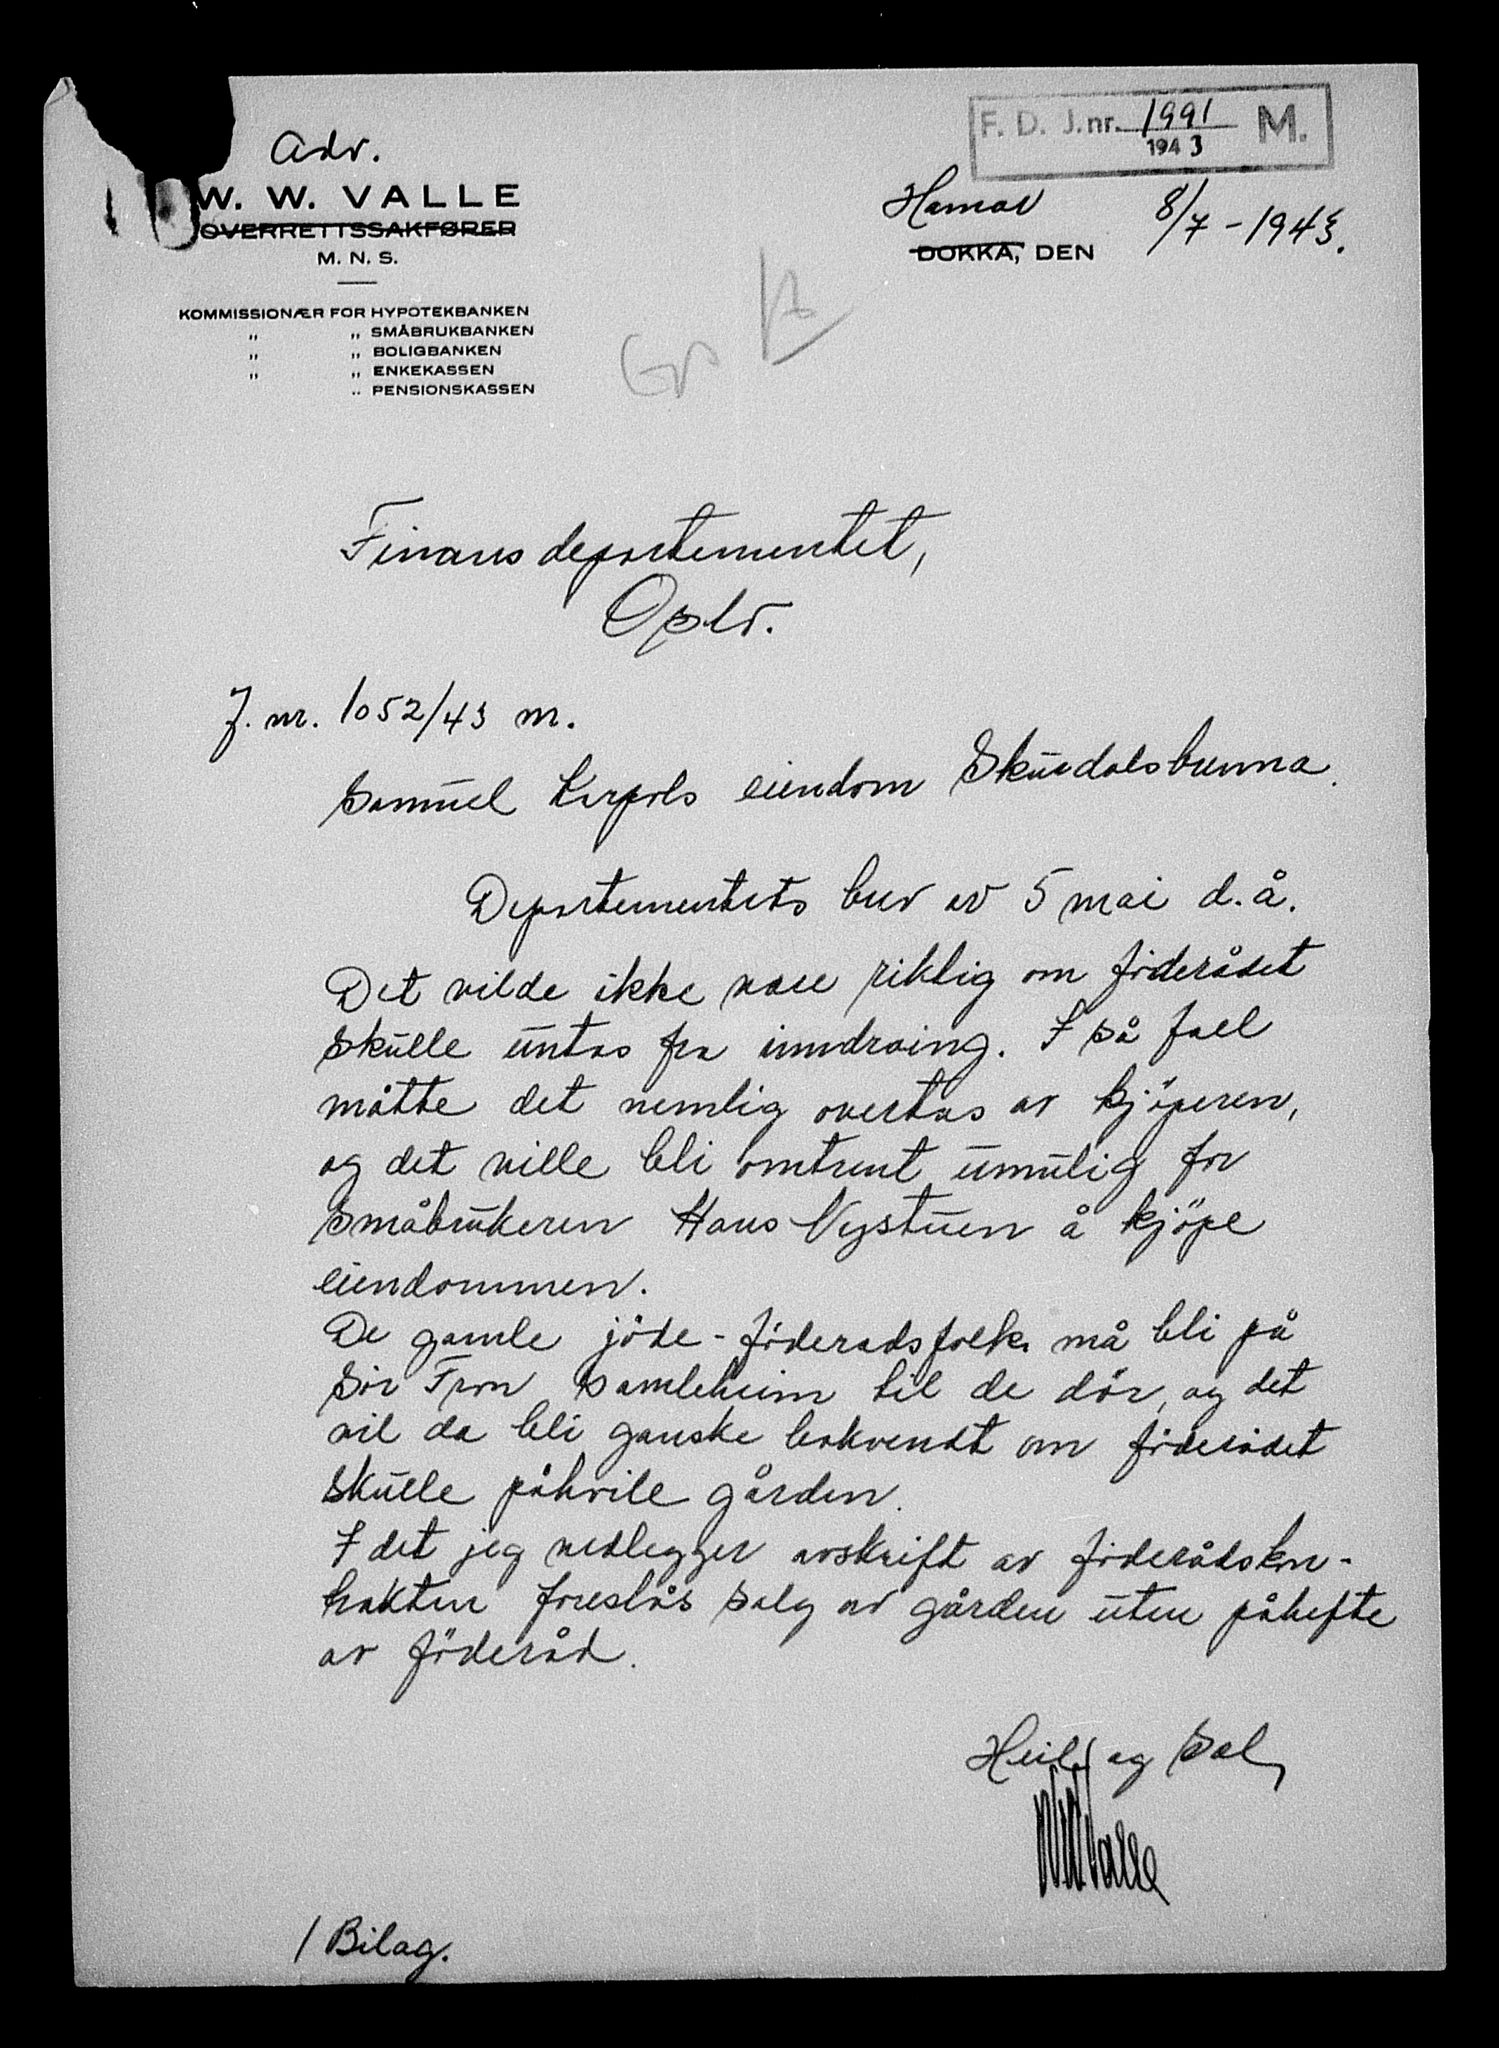 F. D. J.nr. 1991 M.
1943
Adv.
W. W. VALLE
OVERRETTSSAKFØRER
M. N. S.
Hamar 8/7 - 1943.
DOKKA, DEN
KOMMISSIONÆR FOR HYPOTEKBANKEN
„ „ SMÅBRUKBANKEN
„ „ BOLIGBANKEN
„ „ ENKEKASSEN
„ PENSIONSKASSEN
Finansdepartementet,
Oslo.
J. nr. 1052/43 M.
Samuel Karpols eiendom Skurdalsbunna.
Departementets brev av 5 mai d.å.
Det vilde ikke være riktig om föderådet
skulle untas fra inndraing. I så fall
måtte det nemlig overtas av kjöperen,
og det ville bli omtrent umulig for
småbrukeren Hans Nystuen å kjöpe
eiendommen.
De gamle jöde-föderadsfolk må bli på
Sör Fron samleheim til de dör, og det
vil da bli ganske bakvendt om föderådet
skulle påhvile gården.
I det jeg vedlegger avskrift av föderådskon-
trakten foreslås salg av gården uten påhefte
av föderåd.
Heil og Sæl
W.W. Valle
1 Bilag.